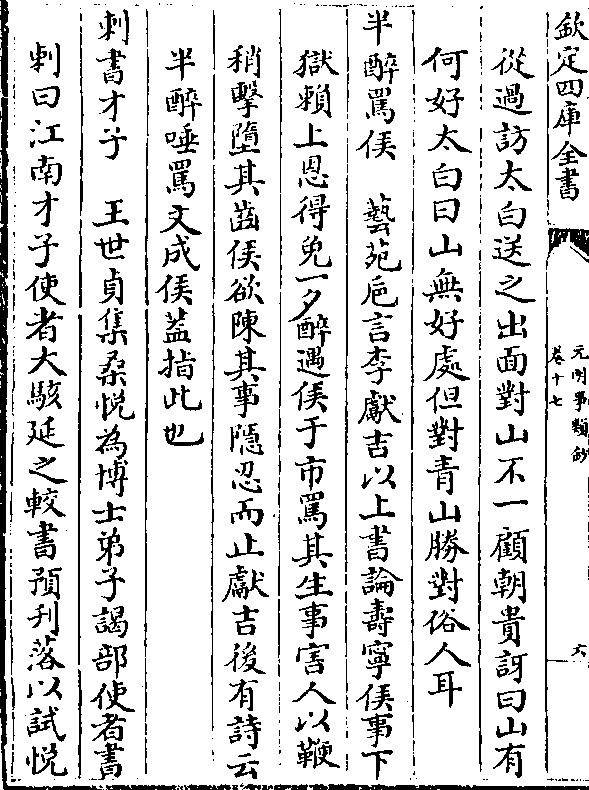 欽定四庫全書
元明事類鈔
卷十七
六
從過訪太白送之出面對山不一顧朝貴訝曰山有
何好太白曰山無好處但對青山勝對俗人耳
半醉罵侯　藝苑巵言李獻吉以上書論壽寧侯事下
獄賴上恩得免一夕醉遇侯于市罵其生事害人以鞭
稍擊墮其齒侯欲陳其事隱忍而止獻吉後有詩云
半醉唾罵文成侯葢指此也
刺書才子　王世貞集桑悅為博士弟子謁部使者書
刺曰江南才子使者大駭延之較書預刋落以試悅